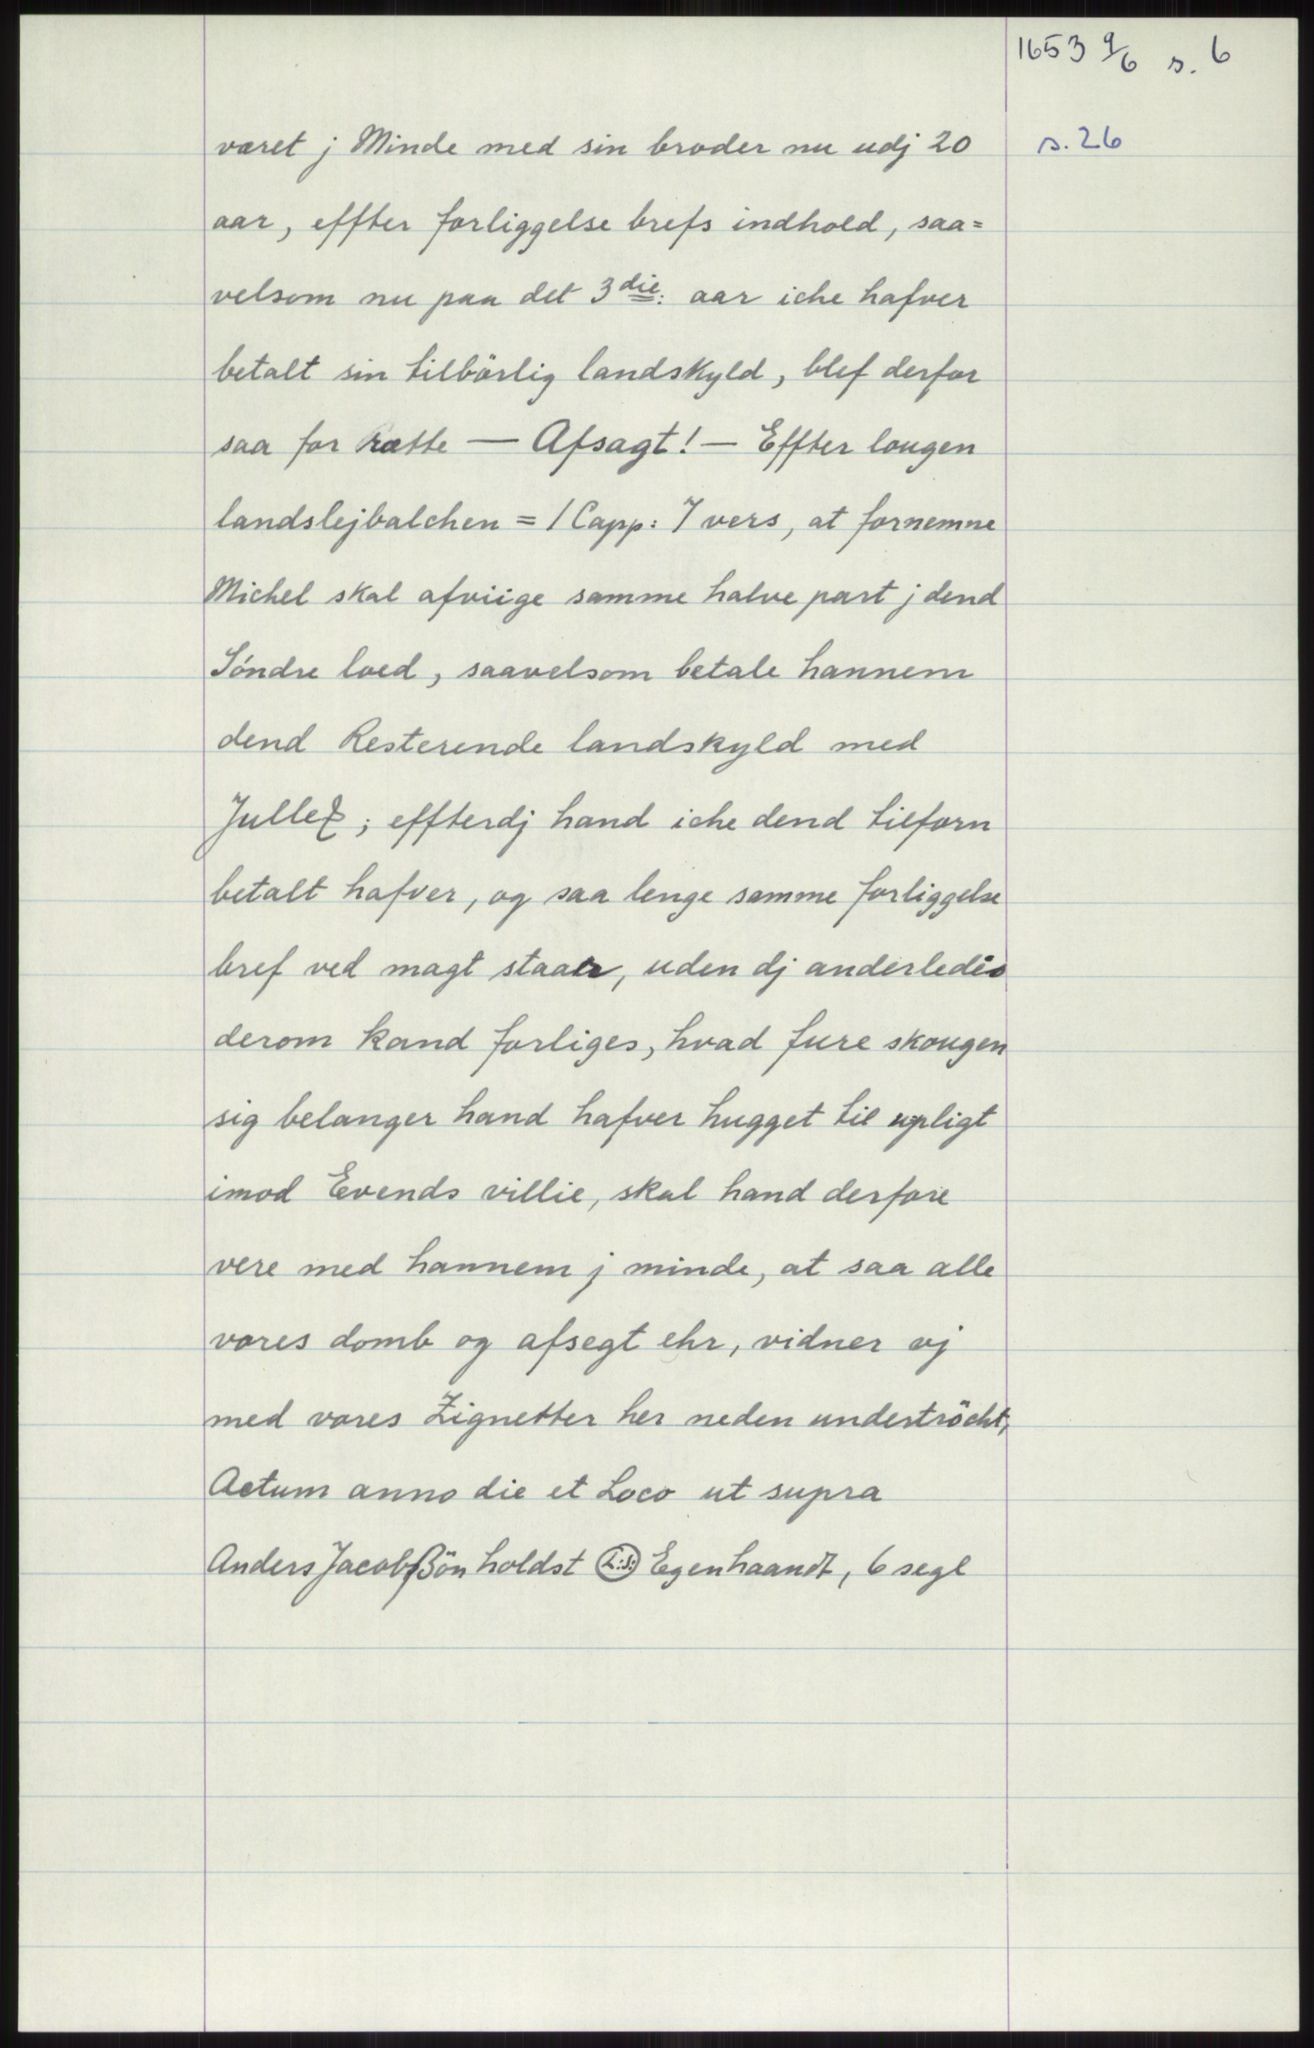 1653 9/6 s. 6
s. 26
været j Minde med sin broder nu udj 20
aar, effter forliggelse brefs indhold, saa=
velsom nu paa det 3die: aar iche hafver
betalt sin tilbörlig landskyld, blef derfor
saa for Rætte — Afsagt! — Effter lougen
landslejbalchen = 1 Capp: 7 vers, at fornemne
Michel skal afviige samme halve part j dend
Söndre loed, saavelsom betale hannem
dend Resterende landskyld med
; effterdj hand iche dend tilforn
betalt hafver, og saa lenge samme forliggelse
bref ved magt staar, uden dj anderledis
derom kand forliges, hvad fure skougen
sig belanger hand hafver hugget til upligt
imod Evends villie, skal hand derfore
vere med hannem j minde, at saa alle
vores domb og afsegt ehr, vidner vj
med vores Zignetter her neden undertröcht,
Actum anno die et Loco ut supra
Anders Jacob Bön holdst L:S: Egenhaandt, 6 segl